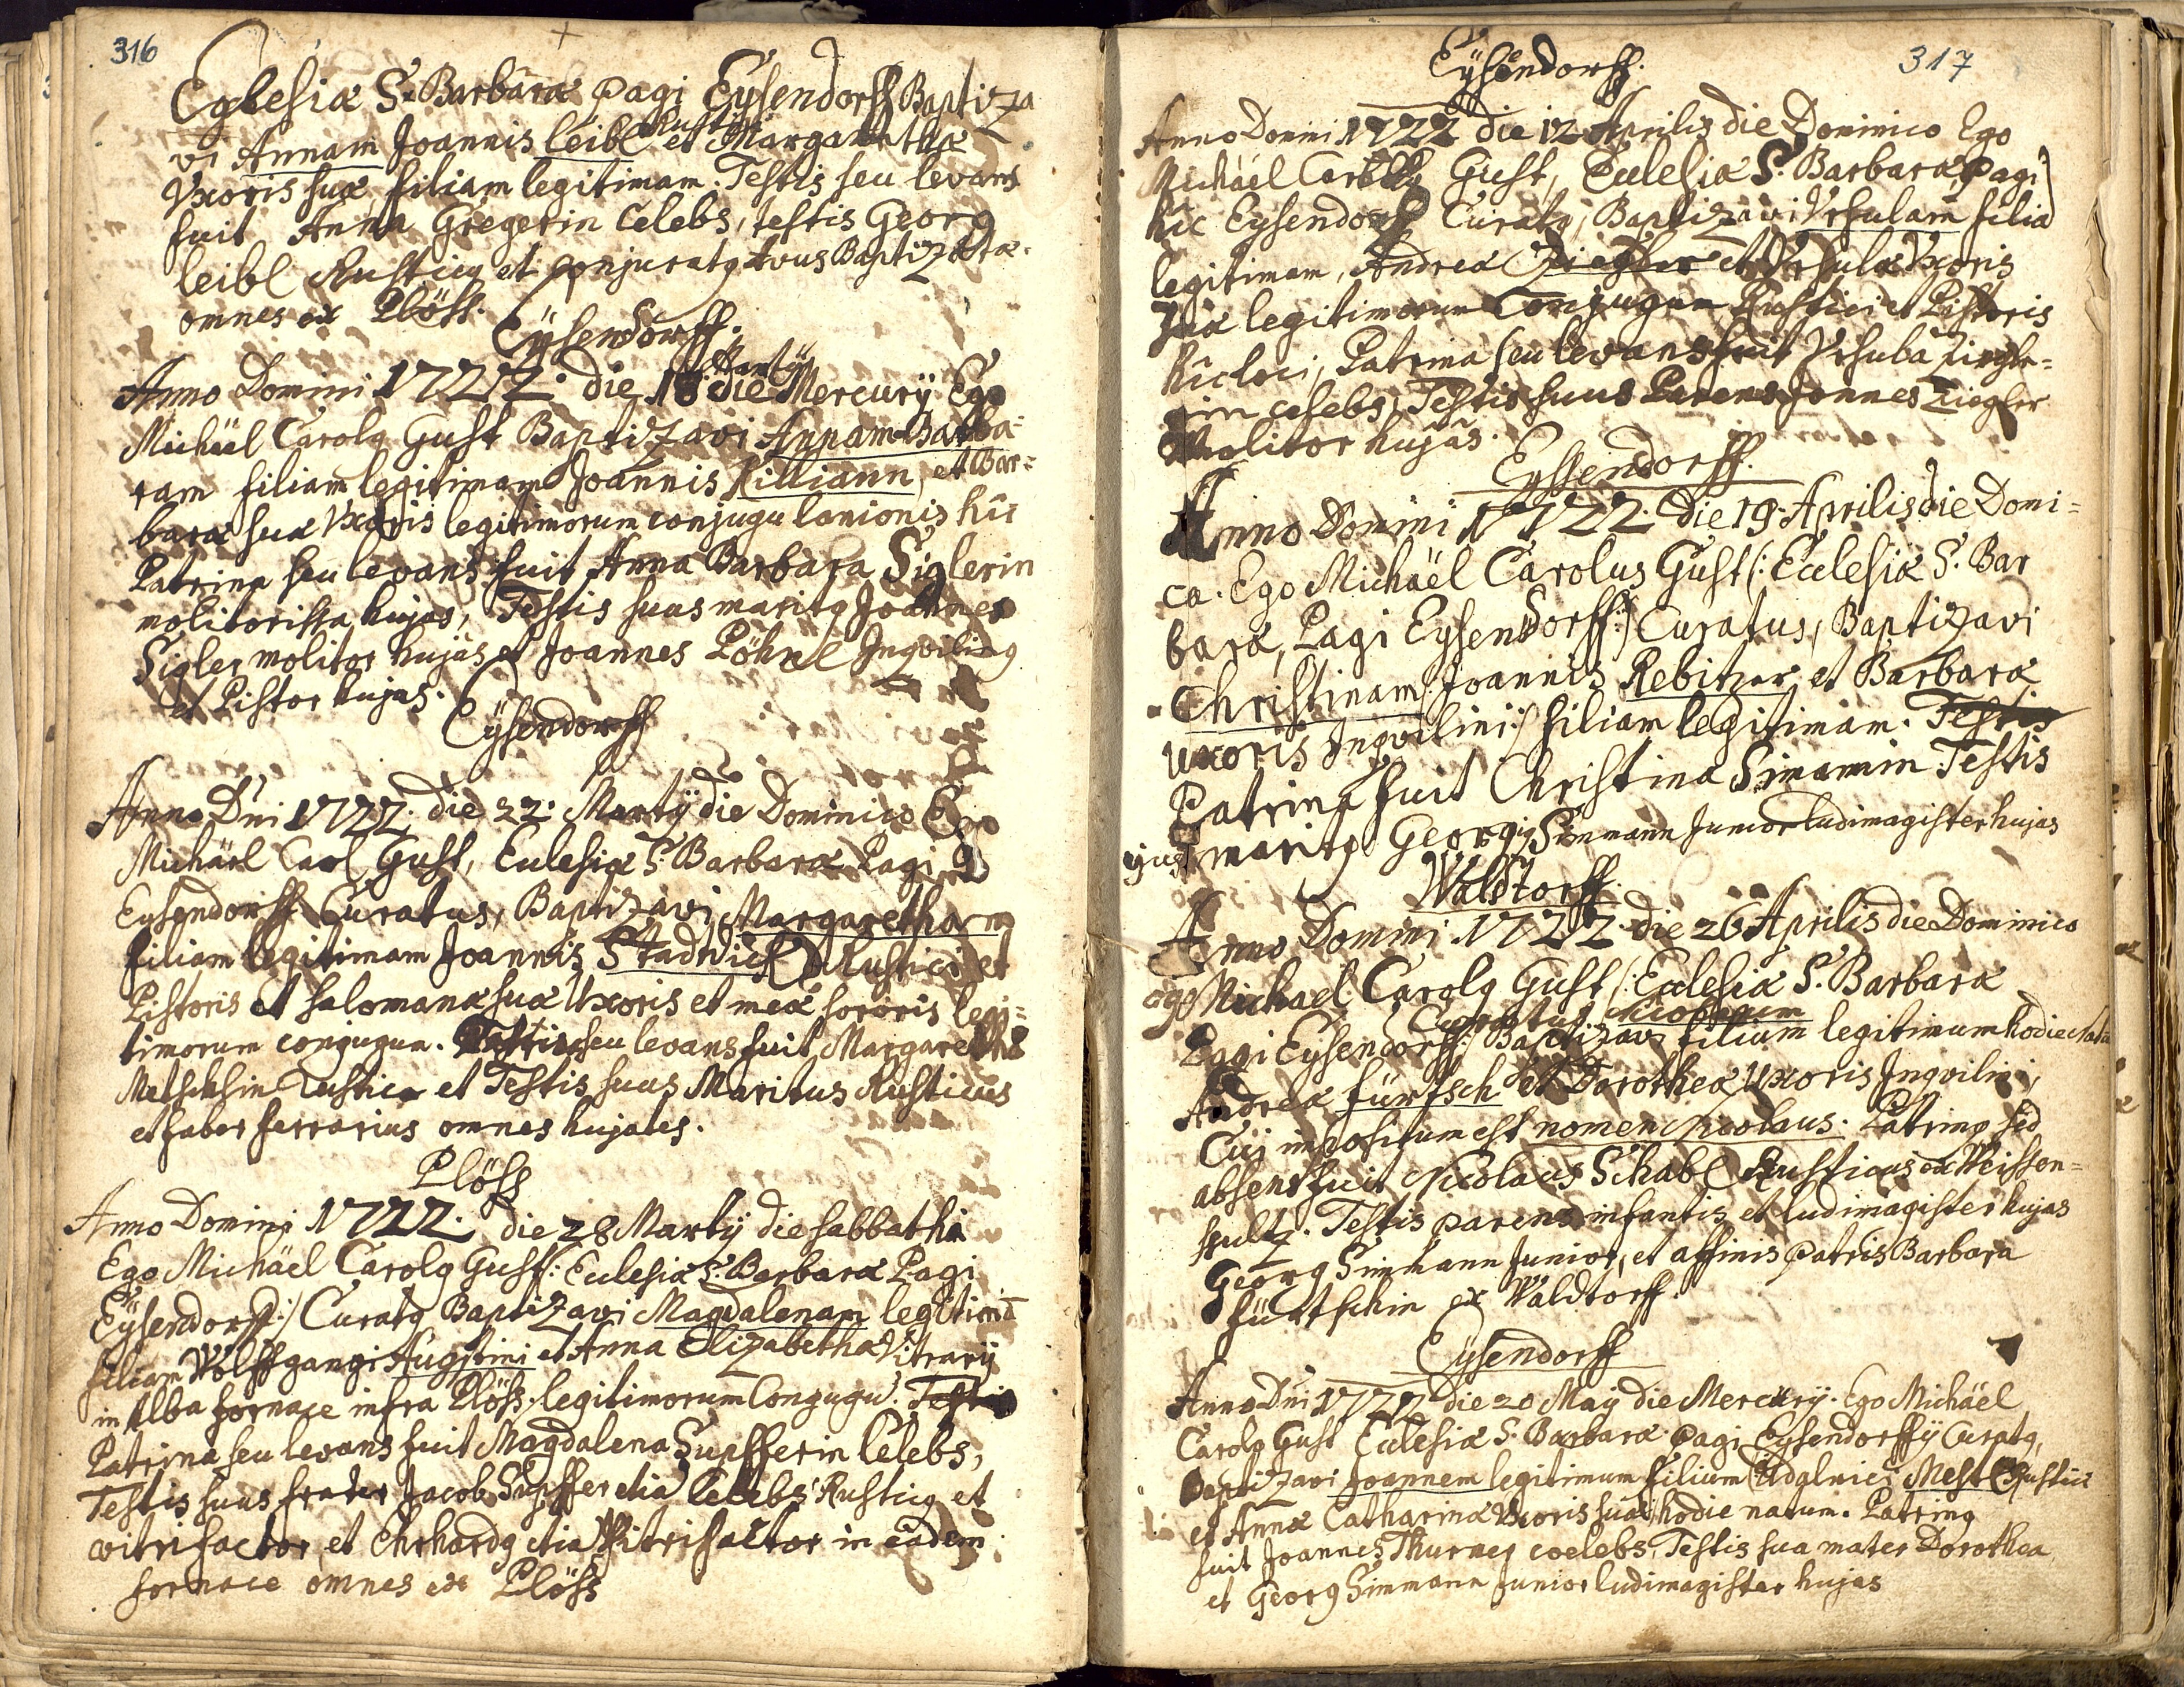 316
Eglesiæ S. Barbaræ pagi Eysendorff Baptiza
vi Annam Joannis Leibl Rustici et Margarethæ
Vxoris suæ, filiam legitimam. Testis seu levans
fuit Anna Gregerin Celebs, testis Georg
leibl Rusticq et conjuratq avus Baptizatæ.
omnes ex Plöss.
Eysendorff.
Anno Domini 1722. die 18 Martÿ die Mercurÿ Ego
Michäel Carolq Gust Baptizavi Annam Barba-
ram filiam legitimam Joannis Killiann, et Bar=
baræ suæ Vxoris legitimorum conjugu lanionis hic
Patrina seu levans fuit Anna Barbara Siglerin
molitorissa hujas, Testis suus maritq Joannes
Sigler molitor hujas et Joannes Pöhnl Inqvilinq
et Pistor hujas.
Eysendorff
Anno Dni 1722. die 22. Martÿ die Dominico Ego
Michäel Carl Gust, Eclesiæ S. Barbaræ Pagi
Eysendorff Curatus, Baptizavi Margaretham
filiam legitimam Joannis Stadtvick Rustici et
Pistoris et Salomanæ suæ Uxoris et meæ sororis legi=
timorum conjugum. seu levans fuit Margaretha
Metschlin Rustica et Testis suus Maritus Rusticus
et faber ferrarius omnes hujates.
Plöss
Anno Domini 1722. die 28 Martÿ die sabbathi
Ego Michäel Carolq Gust /: Eclesiæ S. Barbaræ Pagi
Eysendorff :/ Curatq Baptizavi Magdalenam legitimā
filiam Wolffgangi Augstini et Anna Elizabetha Vitrarÿ
in Alba fornace infra Plöss, legitimorum Conjugu. Testis
Patrina seu levans fuit Magdalena Supfferin Celebs,
Testis suus frater Jacob Supffer etiā Celebs Rusticq et
vitrifactor, et Ehrhardq etiā Vitrifactor in eadem
fornace omnes ex Plöss
317
Eysendorff.
Anno Domini 1722 die 12 Aprilis die Dominico Ego
Michäel Gust, Eclesiæ S. Barbaræ Pagi
hic Eysendorff Curatq, Baptizavi Vrsulam filiā
legitimam, Andreæ Ziegler et Vrsulæ Vxoris
suæ legitimorum Conjugum Rustici et Pistoris
hic loci, Patrina seu levans fuit Vrsula Ziegle=
rin celebs, Testis suus Parens Joannes Ziegler
Molitor hujas.
Eyssendorff.
Anno Domini 1722. die 19. Aprilis die Domi=
ca. Ego Michäel Carolus Gust /: Eclesiæ S. Bar
baræ, Pagi Eysendorff :/ Curatus, Baptizavi
Christinam /: Joannis Rebitzer et Barbaræ
uxoris Inqvilini :/ filiam legitimam. Testis
Patrina fuit Christina Simanin Testis
ejus maritq Georgiq Simmann Junior ludimagister hujas
Waldtorff.
Anno Domini 1722 die 26 Aprilis die Dominico
ego Michael Carolq Gust /: Eclesiæ S. Barbaræ
Pagi Eysendorff :/ Curatus Baptizavi Nicolaum filium legitimum hodie natū
Andreæ Fürtsch et Dorotheæ Uxoris Inqvilini,
Cui impositum est nomen Nicolaus. Patrinq sed
absens fuit Nicolaus Schabl Rusticus ex Weissen=
sultz. Testis parens infantis et ludimagister hujas
Georg Simmann Junior, et affinis patris Barbara
Fürtschin ex Waldtorff.
Eysendorff
Anno Dni 1722 die 20 Maÿ die Mercurÿ. Ego Michäel
Carolq Gust Eclesiæ S. Barbaræ pagi Eysendorffÿ Curatq,
Baptizavi Joannem legitimum filium Udalrici Mest Rustici
et Annæ Catharinæ Vxoris suæ, hodie natum. Patrinq
fuit Joannes Thurner coelebs, Testis sua mater Dorothea
et Georg Simmann Junior ludimagister hujas